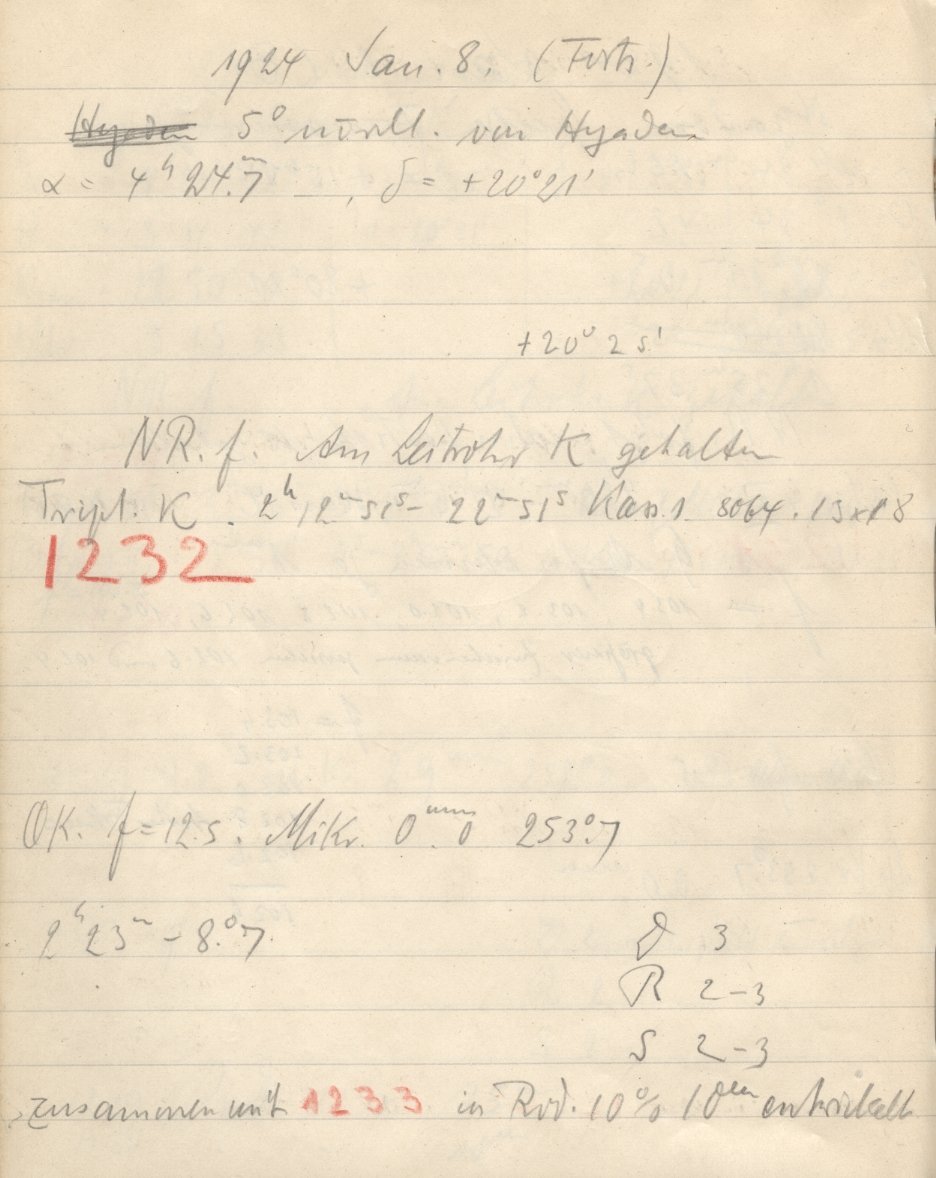 1924 Jan. 8. (Forts.)
Hyaden 5° nördl. von Hyaden
α = 4ʰ 24.ᵐ7 , δ = +20°21'
+20° 25'
NR. f. Am Leitrohr K gehalten
Tripl. K. 2ʰ12ᵐ51ˢ - 22ᵐ51ˢ 8064. 13x18
1232
OK. f = 12.5. Mikr. 0.ᵐᵐ0 253.°7
2ʰ23ᵐ - 8.°7.
D 3
R 2-3
S 2-3
zusammen mit 1233 in Rod. 10% 10ᵐⁱⁿ entwickelt